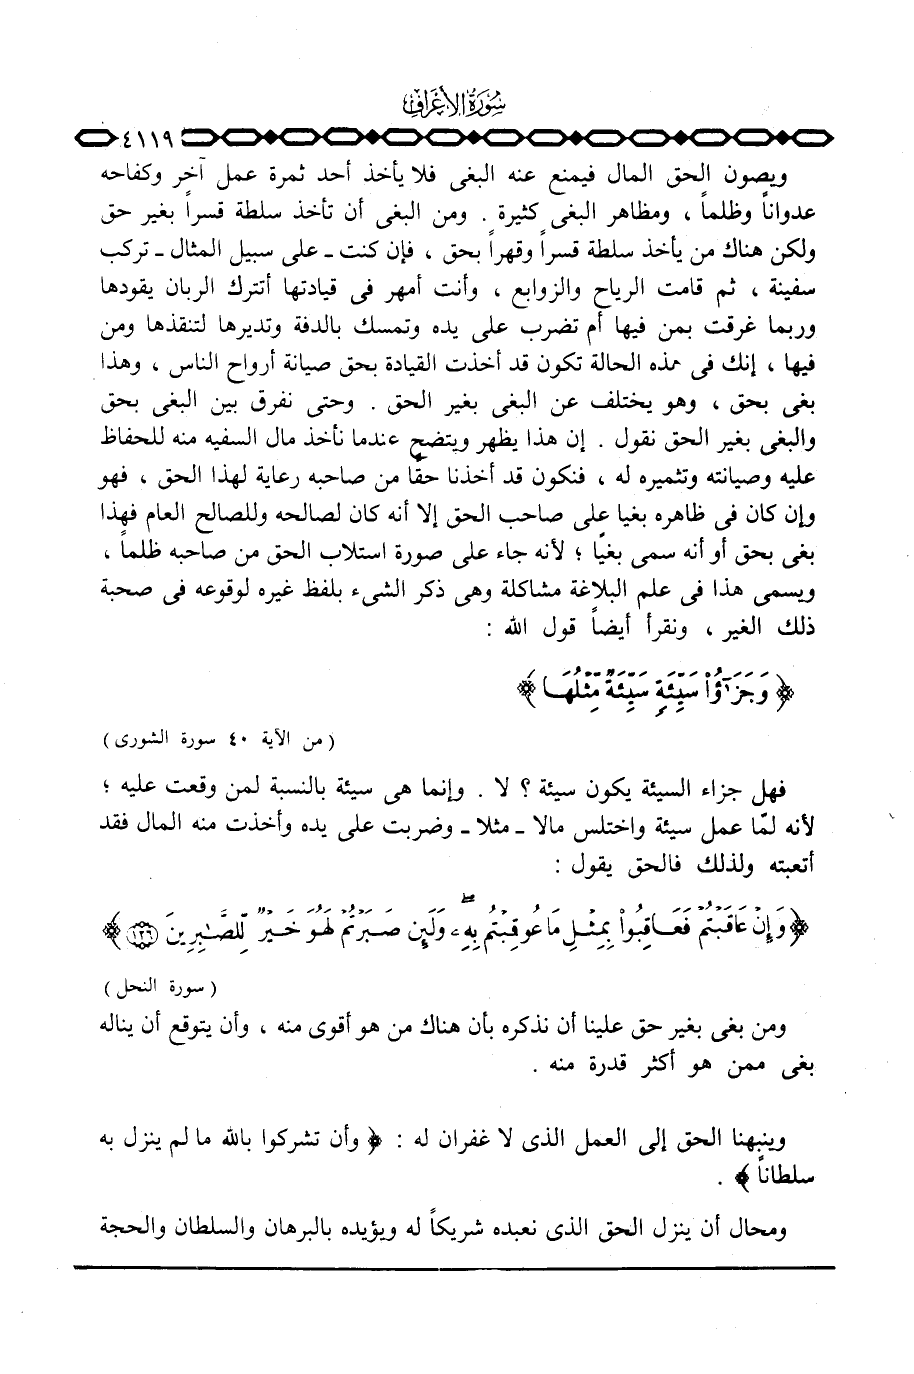 سُورَةُ الأَعْرَاف
٤١١٩
ويصون الحق المال فيمنع عنه البغى فلا يأخذ أحد ثمرة عمل آخر وكفاحه
عدواناً وظلماً ، ومظاهر البغى كثيرة . ومن البغى أن تأخذ سلطة قسراً بغير حق
ولكن هناك من يأخذ سلطة قسراً وقهراً بحق ، فإن كنت ـ على سبيل المثال ـ تركب
سفينة ، ثم قامت الرياح والزوابع ، وأنت أمهر فى قيادتها أتترك الربان يقودها
وربما غرقت بمن فيها أم تضرب على يده وتمسك بالدفة وتديرها لتنقذها ومن
فيها ، إنك فى هذه الحالة تكون قد أخذت القيادة بحق صيانة أرواح الناس ، وهذا
بغى بحق ، وهو يختلف عن البغى بغير الحق . وحتى نفرق بين البغى بحق
والبغى بغير الحق نقول . إن هذا يظهر ويتضح عندما نأخذ مال السفيه منه للحفاظ
عليه وصيانته وتثميره له ، فنكون قد أخذنا حقًا من صاحبه رعاية لهذا الحق ، فهو
وإن كان فى ظاهره بغيا على صاحب الحق إلا أنه كان لصالحه وللصالح العام فهذا
بغى بحق أو أنه سمى بغيًا ؛ لأنه جاء على صورة استلاب الحق من صاحبه ظلماً ،
ويسمى هذا فى علم البلاغة مشاكلة وهى ذكر الشىء بلفظ غيره لوقوعه فى صحبة
ذلك الغير ، ونقرأ أيضاً قول الله :
﴿ وَجَزَٰٓؤُا۟ سَيِّئَةٍ سَيِّئَةٌ مِّثْلُهَا ﴾
( من الآية ٤٠ سورة الشورى )
فهل جزاء السيئة يكون سيئة ؟ لا . وإنما هى سيئة بالنسبة لمن وقعت عليه ؛
لأنه لمّا عمل سيئة واختلس مالا ـ مثلا ـ وضربت على يده وأخذت منه المال فقد
أتعبته ولذلك فالحق يقول :
﴿ وَإِنْ عَاقَبْتُمْ فَعَاقِبُوا۟ بِمِثْلِ مَا عُوقِبْتُم بِهِۦ ۖ وَلَئِن صَبَرْتُمْ لَهُوَ خَيْرٌ لِّلصَّٰبِرِينَ ١٢٦ ﴾
( سورة النحل )
ومن بغى بغير حق علينا أن نذكره بأن هناك من هو أقوى منه ، وأن يتوقع أن يناله
بغى ممن هو أكثر قدرة منه .
وينبهنا الحق إلى العمل الذى لا غفران له : ﴿ وأن تشركوا بالله ما لم ينزل به
سلطاناً ﴾ .
ومحال أن ينزل الحق الذى نعبده شريكاً له ويؤيده بالبرهان والسلطان والحجة